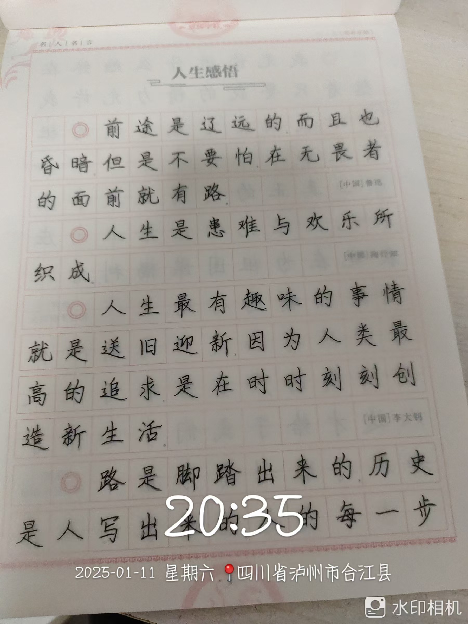 名人名言
人生感悟
前途是辽远的而且也
昏暗但是不要怕在无畏者
的面前就有路
[中国]鲁迅
人生是患难与欢乐所
织成
人生最有趣味的事情
就是送旧迎新因为人类最
高的追求是在时时刻刻创
造新生活
[中国]李大钊
路是脚踏出来的历史
是人写出来的人的每一步
20:35
2025-01-11 星期六 四川省泸州市合江县
水印相机